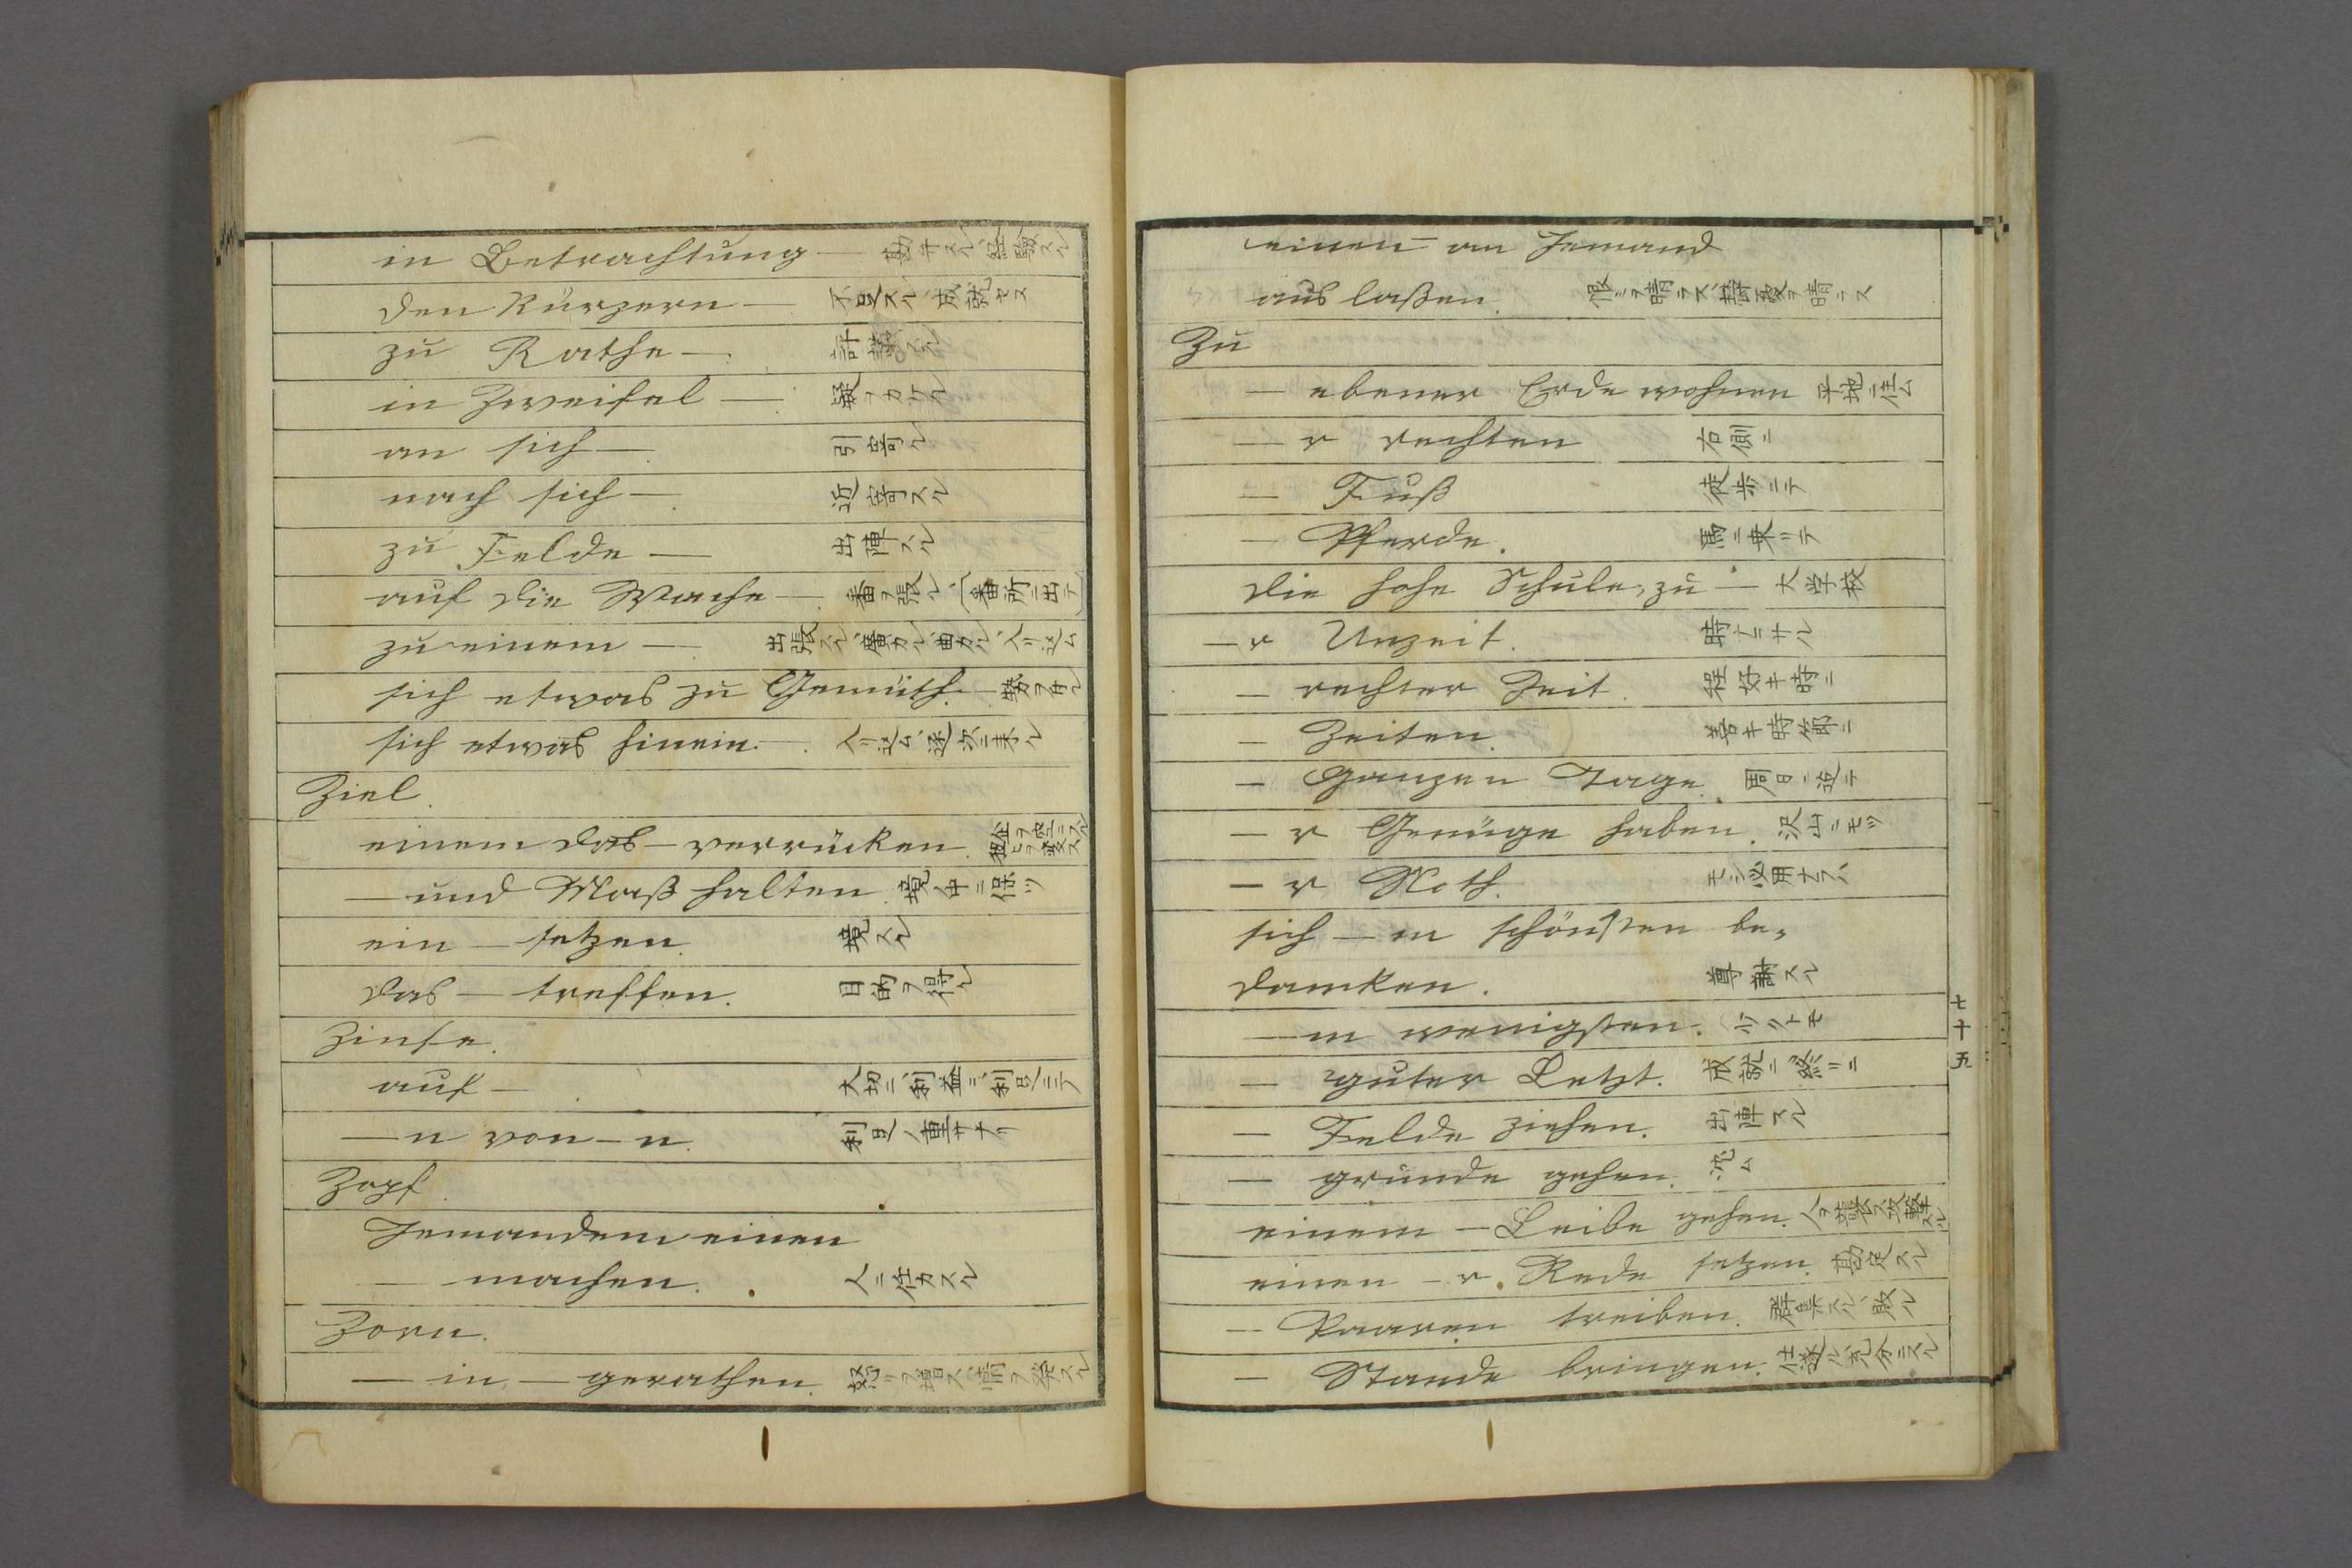 in Betrachtung —
den Kürzern — 不足スル、成就セズ
zu Rathe — 評議スル
in Zweifel — 疑フカケル
an sich — 引寄ル
nach sich — 近寄スル
zu Felde — 出陣スル
auf die Wache — 番ヲ張ル、(番所ニ出テ)
zu einem —
sich etwas zu Gemüth. —
sich etwas hinein. —
Ziel.
einem das — verrücken.
— und Maß halten.
ein — setzen. 境スル
das — treffen. 目的ヲ得ル
Zinse.
auf — 大切ニ、利益ニ、利足ニテ
— n von — n. 利足ノ重サナリ
Zopf.
Jemandem einen
— machen. 人ニ任カスル
Zorn.
— in — gerathen.
einen — an Jemand
aus laßen. 恨ヲ晴ラス、鬱憂ヲ晴ラス
Zu
— ebener Erde wohnen 平地ニ住ム
— r rechten 右側ニ
— Fuß 徒歩ニテ
— Pferde. 馬ニ乗ツテ
die hohe Schule, zu — 大学校
— r Unzeit. 時ナラザル
— rechter Zeit. 程好キ時ニ
— Zeiten. 善キ時節ニ
— Ganzen Tage. 周日ニ迄テ
— r Genüge haben. 沢山ニモツ
— r Noth. モシ必用ナラバ
sich — m schönsten be-
danken. 尊謝スル
— m wenigsten. 少クトモ
— guter Letzt. 成就ニ、終リニ
— Felde ziehen. 出陣スル
— grunde gehen. 沈ム
einem — Leibe gehen. 人ヲ襲フ、攻撃スル
einen — r. Rede setzen. 勘定スル
— Paaren treiben.
— Stande bringen. 仕遂ル、充分ニスル
七十五